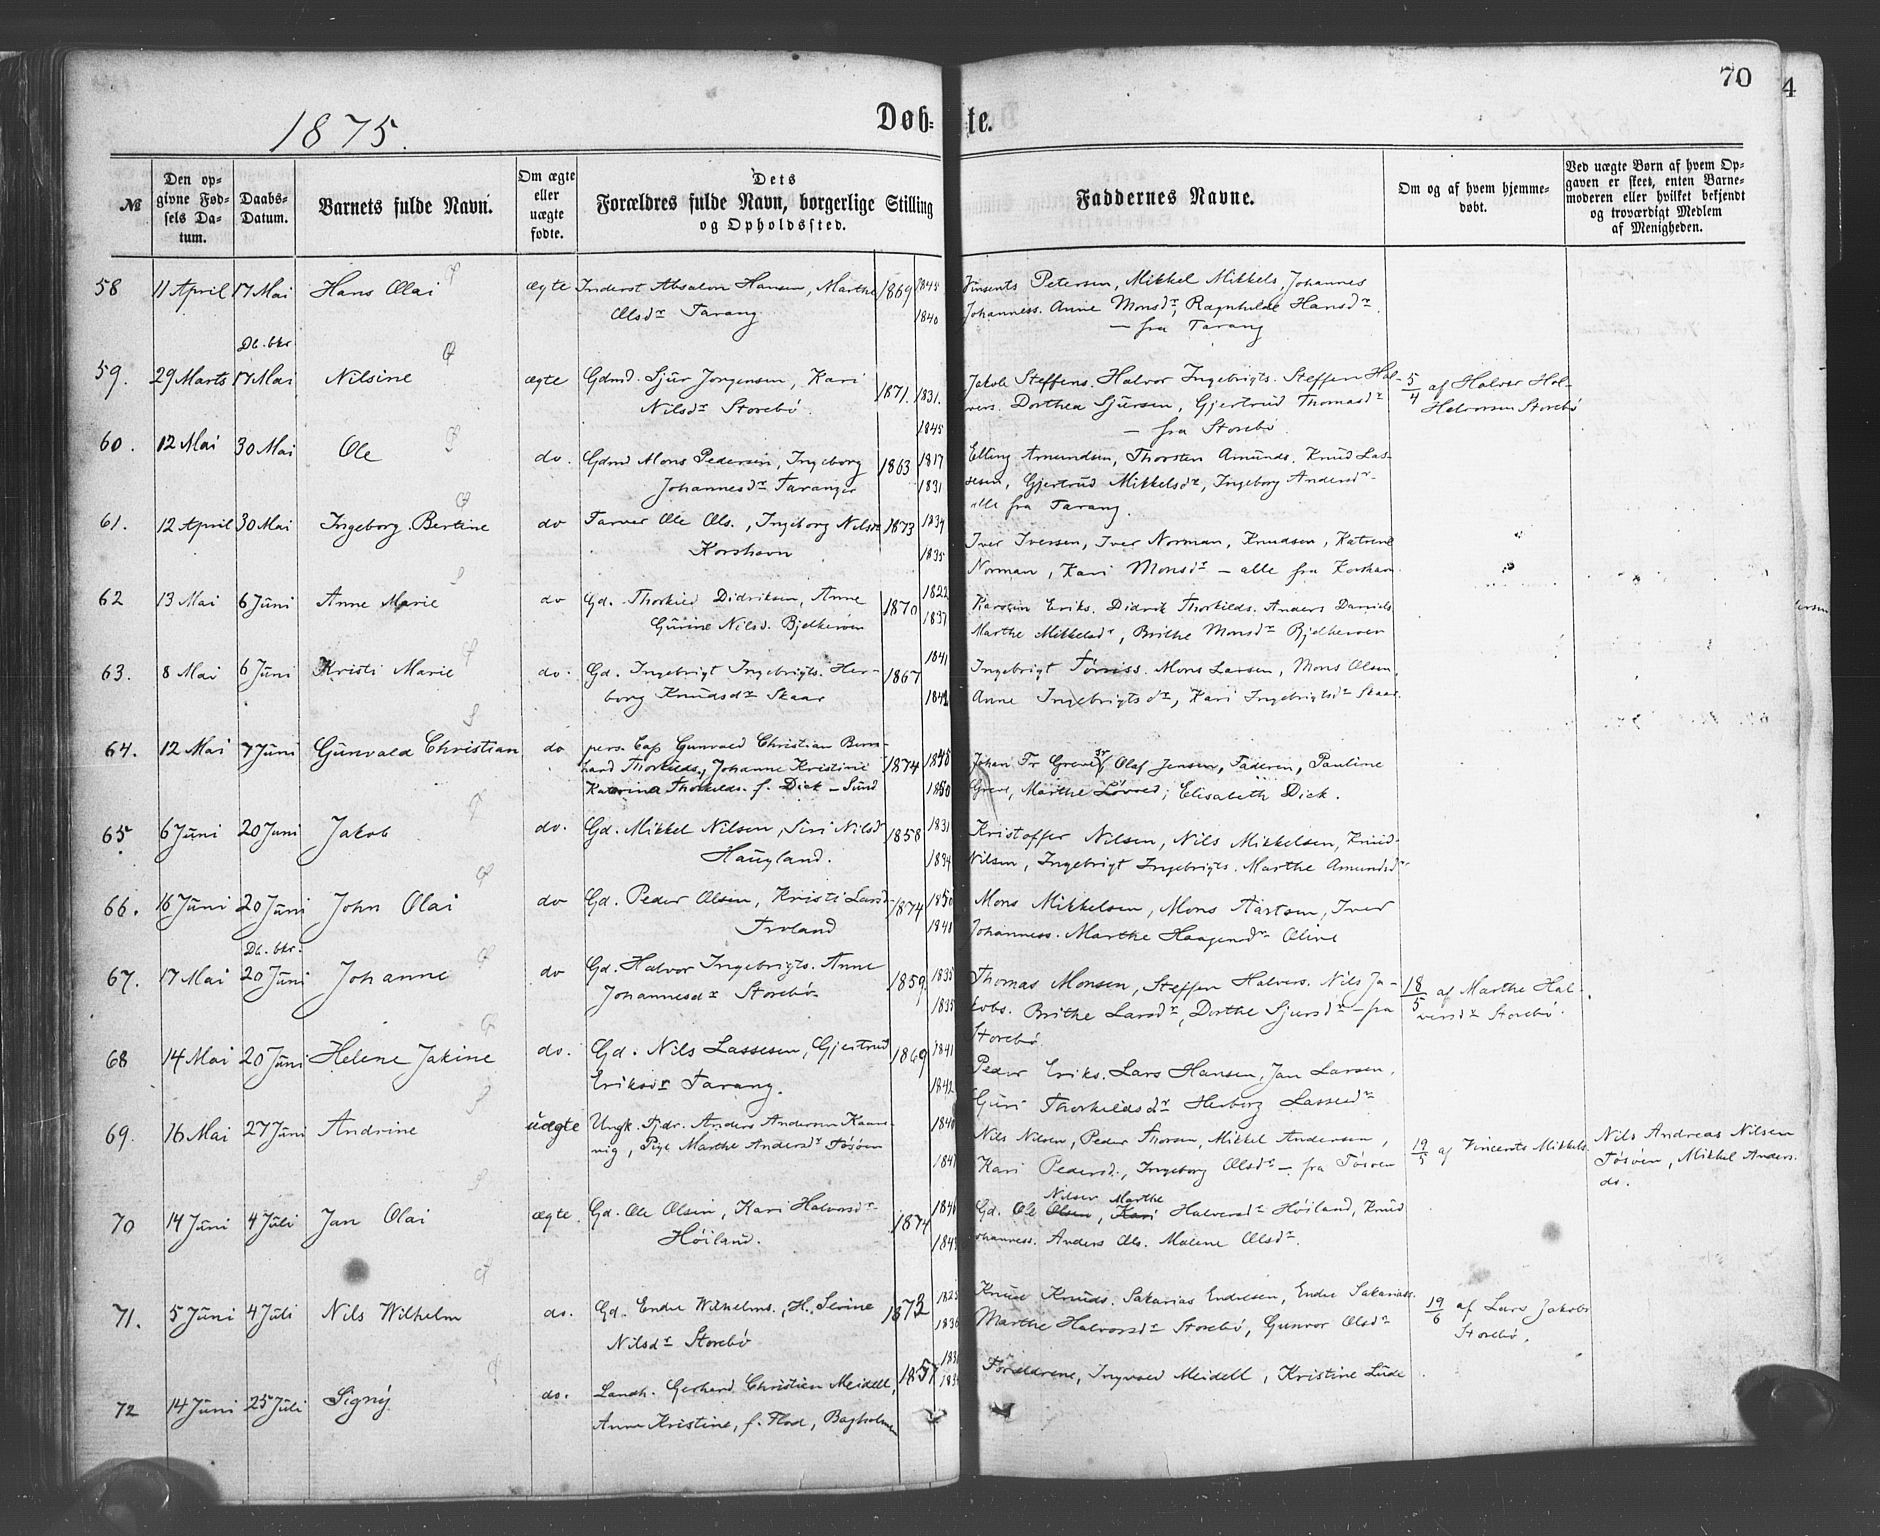 70
4
1875.
Døb-
te.
№
Den op-
givne Fød-
sels Da-
tum.
Daabs-
Datum.
Barnets fulde Navn.
Om ægte
eller
uægte
fødte.
Dets
Forældres fulde Navn, borgerlige Stilling
og Opholdssted.
Faddernes Navne.
Om og af hvem hjemme-
døbt.
Ved uægte Børn af hvem Op-
gaven er skeet, enten Barne-
moderen eller hvilket bekjendt
og troværdigt Medlem
af Menigheden.
58 11 April 17 Mai Hans Olai ægte Inderst Absalon Hansen, Marthe 1869 1845 Vinsents Petersen, Mikkel Mikkels, Johannes
Olsdr Tarang 1840 Johanness. Anne Monsdr, Ragnhilde Hansdr
— fra Tarang
Db. bkr
59. 29 Marts 17 Mai Nilsine ægte Gdmd. Sjur Jørgensen, Kari 1871. 1831. Jakob Steffens. Halvor Ingebrigts. Steffen Hal- 5/4 af Halvor Hal-
Nilsdr Storebø. 1845 vors. Dorthea Sjursen, Gjertrud Thomasdr Halvorsen Storebø
— fra Storebø.
60. 12 Mai 30 Mai Ole do. Gdmd Mons Pedersen, Ingeborg 1863 1817 Elling Amundsen, Thorsten Amunds. Knud Las-
Johannesdr Taranger 1831 sesen, Gjertrud Mikkelsdr, Ingeborg Andersdr
alle fra Tarang.
61. 12 April 30 Mai Ingeborg Bertine do Farver Ole Ols., Ingeborg Nilsdr 1873 1834 Iver Iversen, Iver Norman, Knudsen, Katrine
Korshavn 1835 Norman, Kari Monsdr — alle fra Korshavn.
62 13 Mai 6 Juni Anne Marie do Gd. Thorkild Didriksen, Anne 1870 1822 Karsten Eriks. Didrik Thorkilds. Anders Daniels
Gurine Nilsd. Bjelkerøen 1837 Marthe Mikkelsdr, Brithe Monsdr Bjelkerøen
63. 8 Mai 6 Juni Kristi Marie do. Gd. Ingebrigt Ingebrigts. Her- 1867 1841 Ingebrigt Tørriss. Mons Larsen, Mons Olsen,
borg Knudsdr Skaar 1842 Anne Ingebrigtsdr, Kari Ingebrigtsdr Skaar.
64. 12 Mai 7 Juni Gunvald Christian do pers. Cap Gunvald Christian Bern- 1874 1845 Johan Fr Greve, Olaf Jensen, Faderen, Pauline
hard Thorkilds, Johanne Kristine 1850 Greve, Marthe Løvold, Elisabeth Dick.
Katrine Thorkilds. f. Dick — Sund
65 6 Juni 20 Juni Jakob do. Gd. Mikkel Nilsen, Siri Nilsdr 1858 1831 Kristoffer Nilsen, Nils Mikkelsen, Knud
Haugland. 1834 Nilsen, Ingebrigt Ingebrigts. Marthe Amundsdr
66. 16 Juni 20 Juni John Olai do Gd. Peder Olsen, Kristi Larsd 1874 1850 Mons Mikkelsen, Mons Aartsen, Iver
Troland 1848 Johanness. Marthe Haagensdr Oline
Db. bkr.
67. 17 Mai 20 Juni Johanne do Gd. Halvor Ingebrigts. Anne 1859 1835 Thomas Monsen, Steffen Halvors. Nils Ja- 18/5 af Marthe Hal-
Johannesdr Storebø. 1835 kobs. Brithe Larsdr, Dorthe Sjursdr — fra vorsdr Storebø.
Storebø.
68 14 Mai 20 Juni Helene Jakine do. Gd. Nils Lassesen, Gjertrud 1869 1841 Peder Eriks. Lars Hansen, Jan Larsen,
Eriksdr Tarang. 1842 Guri Thorkildsdr Herborg Lassesdr
69. 16 Mai 27 Juni Andrine uægte Ungk. Fjdr. Anders Andersen Kaarr- 1840 Nils Nilsen, Peder Thorsen, Mikkel Andersen, 19/5 af Vincents Mikkels. Nils Andreas Nilsen
vig, Pige Marthe Andersdr Tøsøen 1847 Kari Pedersd., Ingeborg Olsdr — fra Tøsøen Tøsøen, Mikkel Anders.
do.
70 14 Juni 4 Juli Jan Olai ægte. Gd. Ole Olsen, Kari Halvorsdr 1874 1846 Gd. Ole Olsen Nilsen, Kari Marthe Halvorsdr Høiland, Knud
Høiland. 1849 Johanness. Anders Ols. Malene Olsdr.
71. 5 Juni 4 Juli Nils Wilhelm do. Gd. Endre Wilhelms., H. Serine 1873 1825 Knud Knuds. Sakarias Endresen, Endre Sakariass. 19/6 af Lars Jakobs
Nilsdr Storebø 1836 Marthe Halvorsdr Storebø, Gunvor Olsdr Storebø.
72 14 Juni 25 Juli Signy do. Landh. Gerhard Christian Meidell, 1857 1831 Forældrene, Ingvald Meidell, Kristine Lude
Anne Kristine, f. Flod, Bagholmen